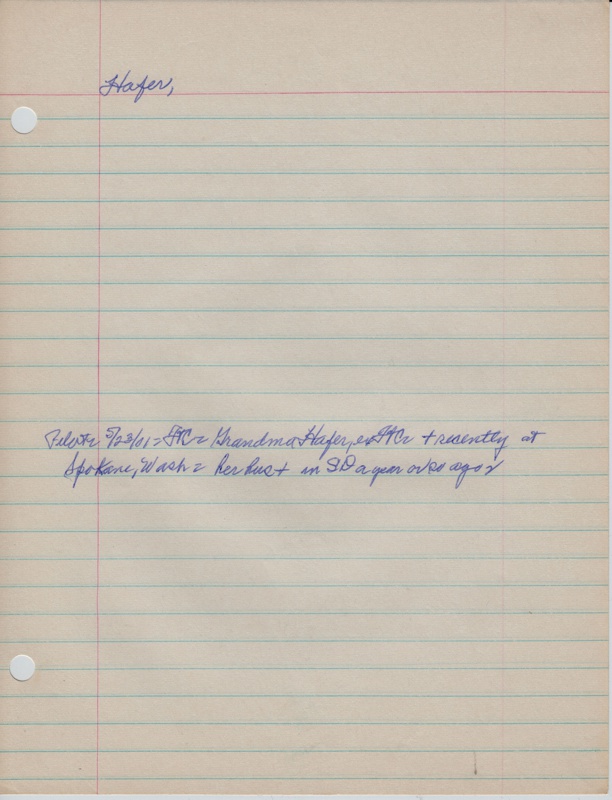 Hafer,
Pilot= 5/23/01= FtC= Grandma Hafer, ex FtC= + recently at
Spokane, Wash= her hus + in SD a year or so ago=